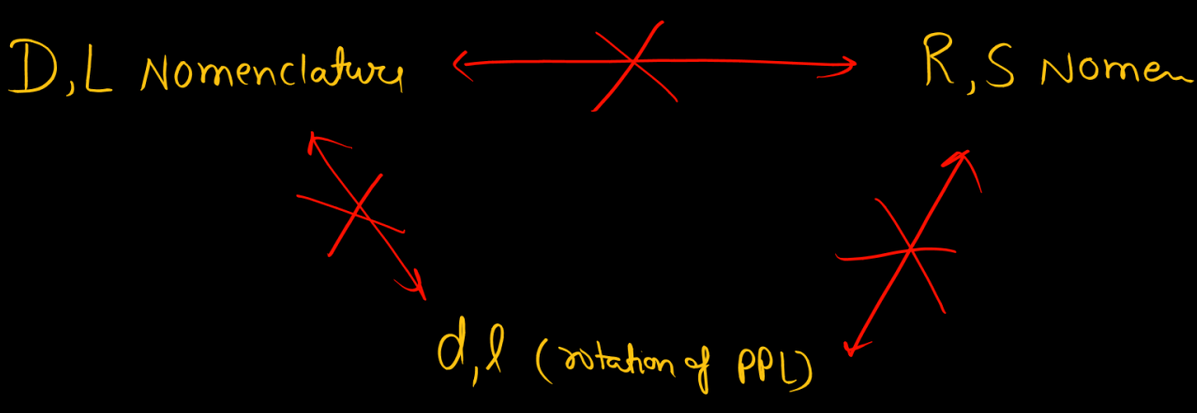 D,L Nomenclature
R,S Nomen
d,l (rotation of PPL)